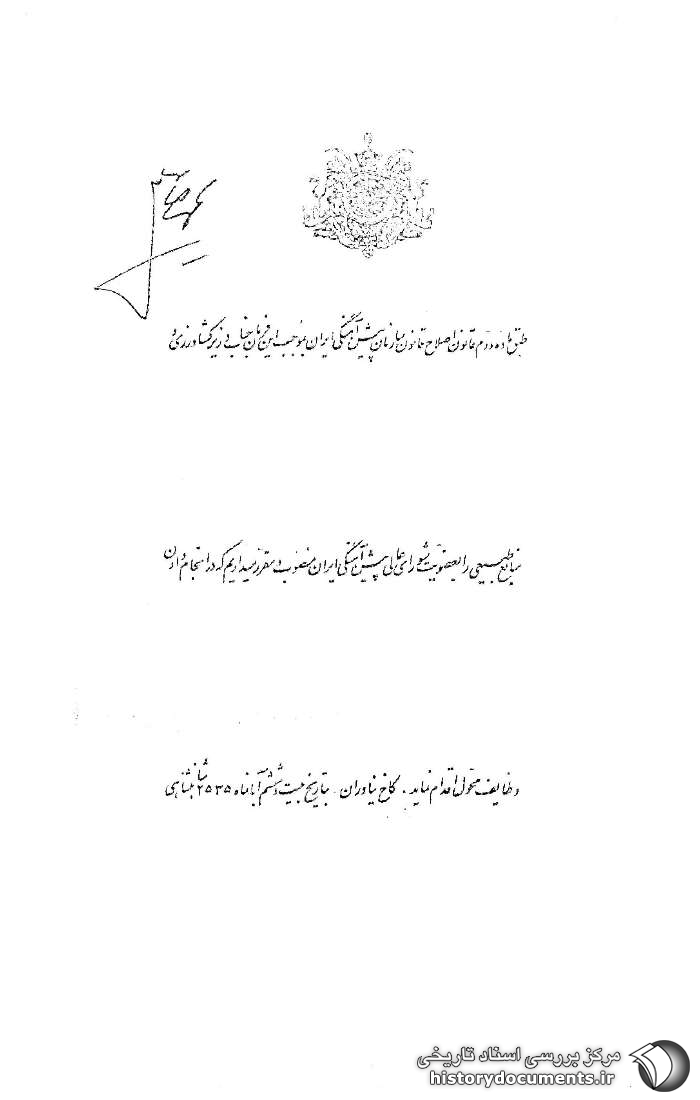 طبق ماده دوم قانون اصلاح قانون سازمان پیش‌آهنگی ایران بموجب این فرمان جناب وزیر کشاورزی و
منابع طبیعی را بعضویت شورای عالی پیش‌آهنگی ایران منصوب و مقرر میداریم که در انجام دادن
وظایف محول اقدام نماید. کاخ نیاوران - بتاریخ بیست و ششم آبانماه ۲۵۳۵ شاهنشاهی
مرکز بررسی اسناد تاریخی
historydocuments.ir